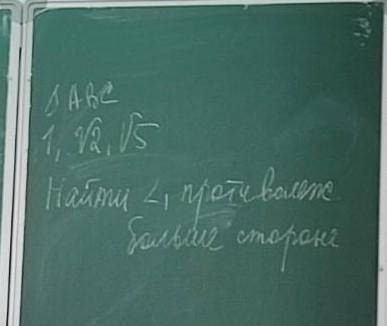 Δ ABC
1, √2, √5
Найти ∠, противолеж
больше стороне